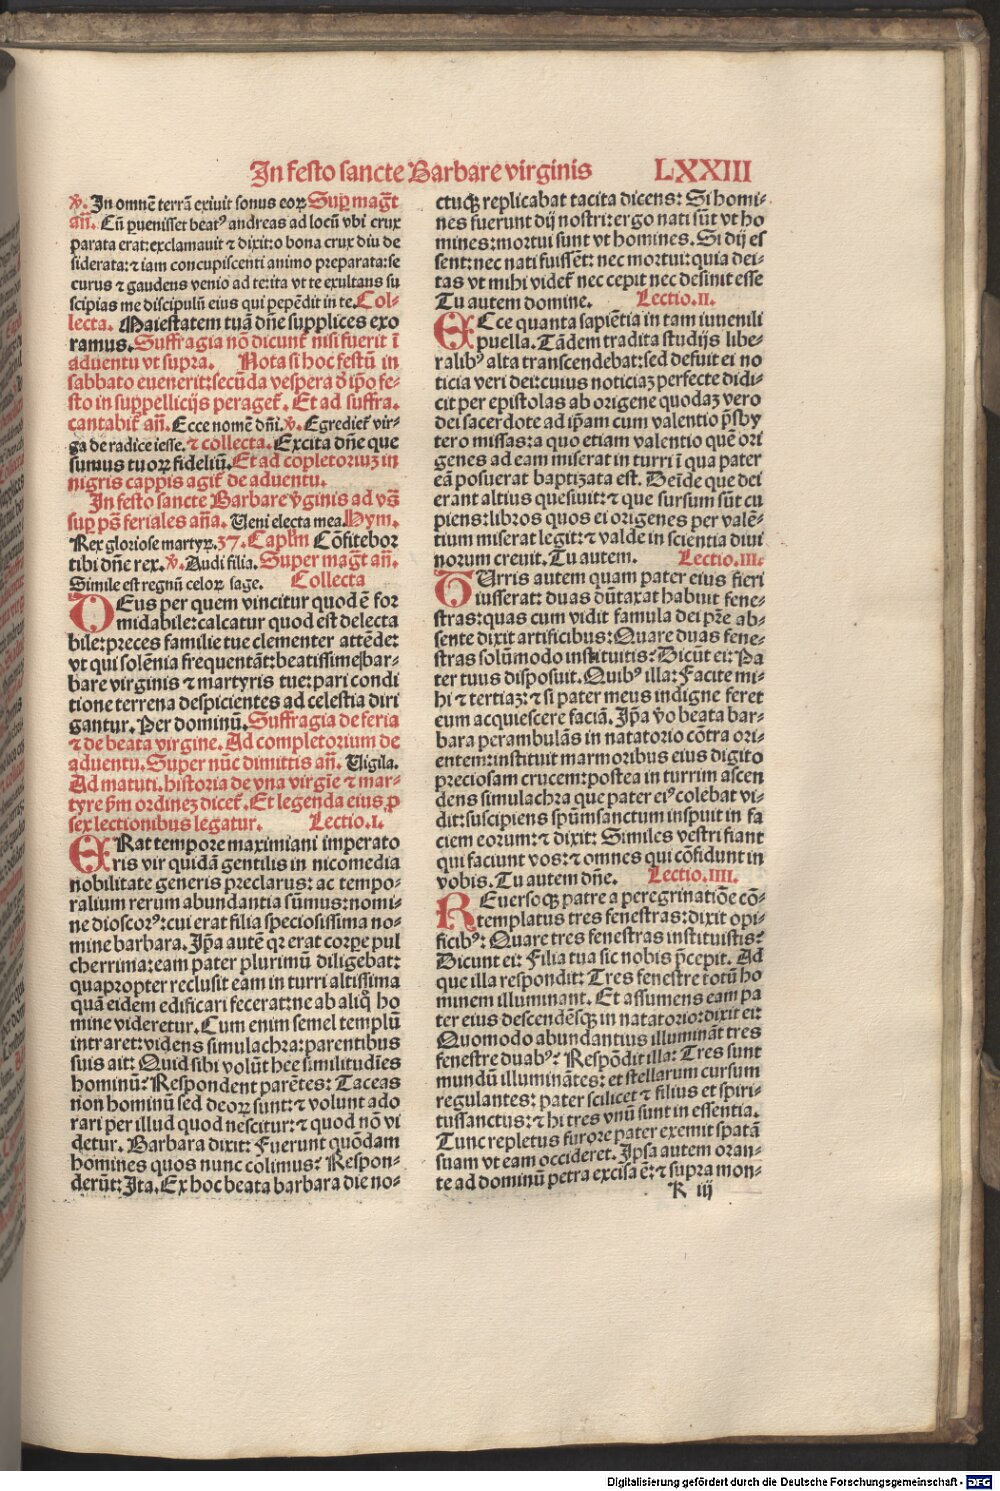 In festo sancte Barbare virginis LXXIII
℣. In omnē terrā exiuit sonus eoꝝ Suꝑ mag̃t
añ. Cū ꝑuenisset beatꝰ andreas ad locū vbi crux
parata erat:exclamauit ⁊ dixit:o bona crux diu de
siderata:⁊ iam concupiscenti animo preparata:se
curus ⁊ gaudens venio ad te:ita vt te exultans su
scipias me discipulū eius qui pepēdit in te. Col-
lecta. Maiestatem tuā dñe supplices exo
ramus. Suffragia nō dicunt̃ nisi fuerit ī
aduentu vt supra. Nota si hoc festū in
sabbato euenerit:secūda vespera d̄ ip̄o fe-
sto in suꝑpellicijs peraget̃. Et ad suffra.
cantabit̃ añ. Ecce nomē dñi. ℣. Egrediet̃ vir-
ga de radice iesse. ⁊ collecta. Excita dñe que
sumus tuoꝝ fideliū. Et ad cōpletoriuꝫ in
nigris cappis agit̃ de aduentu.
In festo sancte Barbare v̄ginis ad vs̄
sup ps̄ feriales añā. Ueni electa mea. Hym.
Rex gloriose martyꝝ. 37. Capl̄m Cōfitebor
tibi dñe rex. ℣. Audi filia. Super mag̃t añ.
Simile est regnū celoꝝ sage. Collecta
DEus per quem vincitur quod ē for
midabile:calcatur quod est delecta
bile:preces familie tue clementer attēde:
vt qui solēnia frequentāt:beatissime bar-
bare virginis ⁊ martyris tue:pari condi
tione terrena despicientes ad celestia diri
gantur. Per dominū. Suffragia de feria
⁊ de beata virgine. Ad completorium de
aduentu. Super nūc dimittis añ. Uigila.
Ad matuti. historia de vna virgīe ⁊ mar-
tyre ꝑm ordineꝫ dicet̃. Et legenda eius ꝑ
sex lectionibus legatur. Lectio.I.
ERat tempore maximiani imperato
ris vir quidā gentilis in nicomedia
nobilitate generis preclarus: ac tempo-
ralium rerum abundantia sūmus:nomi-
ne dioscorꝰ:cui erat filia speciosissima no-
mine barbara. Ip̄a autē qꝛ erat corꝑe pul
cherrima:eam pater plurimū diligebat:
quapropter reclusit eam in turri altissima
quā eidem edificari fecerat:ne ab aliq̄ ho
mine videretur. Cum enim semel templū
intraret:videns simulachra:parentibus
suis ait: Quid sibi volūt hec similitudīes
hominū? Respondent parētes: Taceas
non hominū sed deoꝝ sunt:⁊ volunt ado
rari per illud quod nescitur:⁊ quod nō vi
detur. Barbara dixit: Fuerunt quōdam
homines quos nunc colimus? Respon-
derūt: Ita. Ex hoc beata barbara die no-
ctuqꝫ replicabat tacita dicens: Si homi-
nes fuerunt dij nostri:ergo nati sūt vt ho
mines:mortui sunt vt homines. Si dij es
sent:nec nati fuissēt: nec mortui: quia dei-
tas vt mihi videt̃ nec cepit nec desinit esse
Tu autem domine. Lectio.II.
ECce quanta sapiētia in tam iuuenili
puella. Tādem tradita studijs libe-
ralibꝰ alta transcendebat:sed defuit ei no
ticia veri dei:cuius noticiaꝫ perfecte didi-
cit per epistolas ab origene quodaꝫ vero
dei sacerdote ad ip̄am cum valentio p̄sby
tero missas:a quo etiam valentio quē ori
genes ad eam miserat in turri ī qua pater
eā posuerat baptizata est. Deīde que dei
erant altius quesiuit:⁊ que sursum sūt cu
piens:libros quos ei origenes per valē-
tium miserat legit:⁊ valde in scientia diui
norum creuit. Tu autem. Lectio.III.
TUrris autem quam pater eius fieri
iusserat: duas dūtaxat habuit fene-
stras:quas cum vidit famula dei pr̄e ab-
sente dixit artificibus: Quare duas fene-
stras solūmodo instituitis? Dicūt ei: Pa
ter tuus disposuit. Quibꝰ illa: Facite mi-
hi ⁊ tertiaꝫ:⁊ si pater meus indigne feret
eum acquiescere faciā. Ip̄a v̄o beata bar-
bara perambulās in natatorio cōtra ori-
entem:instituit marmoribus eius digito
preciosam crucem:postea in turrim ascen
dens simulachra que pater eiꝰ colebat vi-
dit:suscipiens spūmsanctum inspuit in fa
ciem eorum:⁊ dixit: Similes vestri fiant
qui faciunt vos:⁊ omnes qui cōfidunt in
vobis. Tu autem dñe. Lectio.IIII.
REuersoqꝫ patre a peregrinatiōe cō-
templatus tres fenestras:dixit opi-
ficibꝰ: Quare tres fenestras instituistis?
Dicunt ei: Filia tua sic nobis p̄cepit. Ad
que illa respondit: Tres fenestre totū ho
minem illuminant. Et assumens eam pa
ter eius descendēsqꝫ in natatorio:dixit ei:
Quomodo abundantius illumināt tres
fenestre duabꝰ? Respōdit illa: Tres sunt
mundū illuminātes: et stellarum cursum
regulantes: pater scilicet ⁊ filius et spiri-
tussanctus:⁊ hi tres vnū sunt in essentia.
Tunc repletus furore pater exemit spatā
suam vt eam occideret. Ipsa autem oran-
te ad dominū petra excisa ē:⁊ supra mon-
K iij
Digitalisierung gefördert durch die Deutsche Forschungsgemeinschaft - DFG